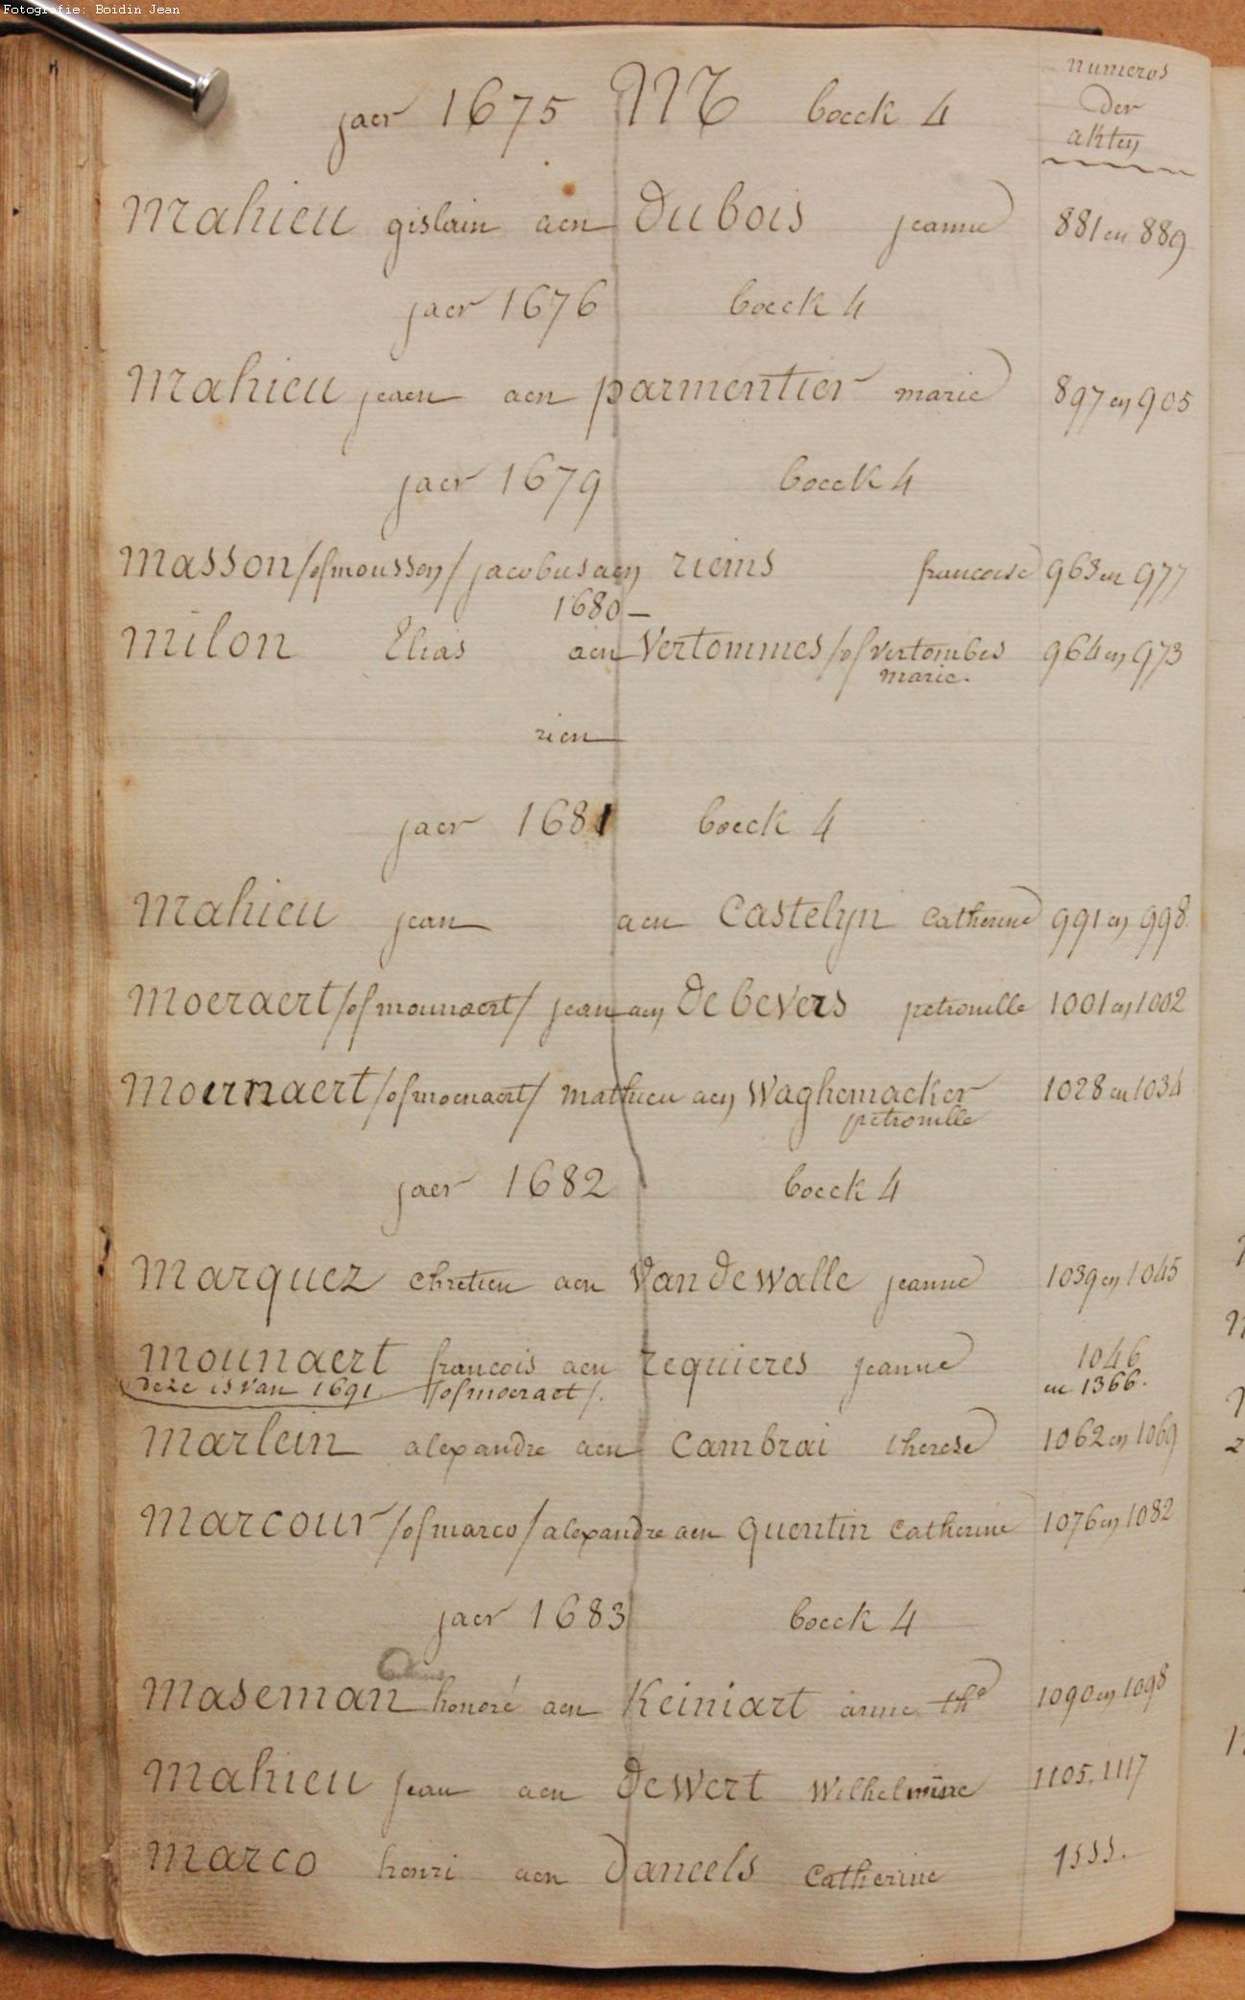 Fotografie: Boidin Jean
numeros
der
akten
jaer 1675 M boeck 4
Mahieu gislain aen Dubois jeanne 881 en 889
jaer 1676 boeck 4
Mahieu jean aen parmentier marie 897 en 905
jaer 1679 boeck 4
masson /of mousson/ jacobus aen riems francoise 963 en 977
1680 -
milon Elias aen Vertommes /of vertombes 964 en 973
marie.
rien
jaer 1681 boeck 4
Mahieu jean aen Castelyn Catherine 991 en 998.
Moeraert /of mounaert/ jean aen De bevers petronille 1001 en 1002
Moernaert /of moenaert/ mathieu aen Waghemacker 1028 en 1034
petronille
jaer 1682 boeck 4
Marquez chretien aen Van De walle jeanne 1039 en 1045
mounaert francois aen requieres jeanne 1046
deze is van 1691. /of moeraet/. en 1366.
Marlein alexandre aen Cambrai therese 1062 en 1069
Marcour /of marco/ alexandre aen quentin Catherine 1076 en 1082
jaer 1683 boeck 4
Maseman honoré aen Keiniart anne the 1090 en 1098
Mahieu jean aen De wert Wilhelmine 1105. 1117
Marco henri aen Daneels Catherine 1555.